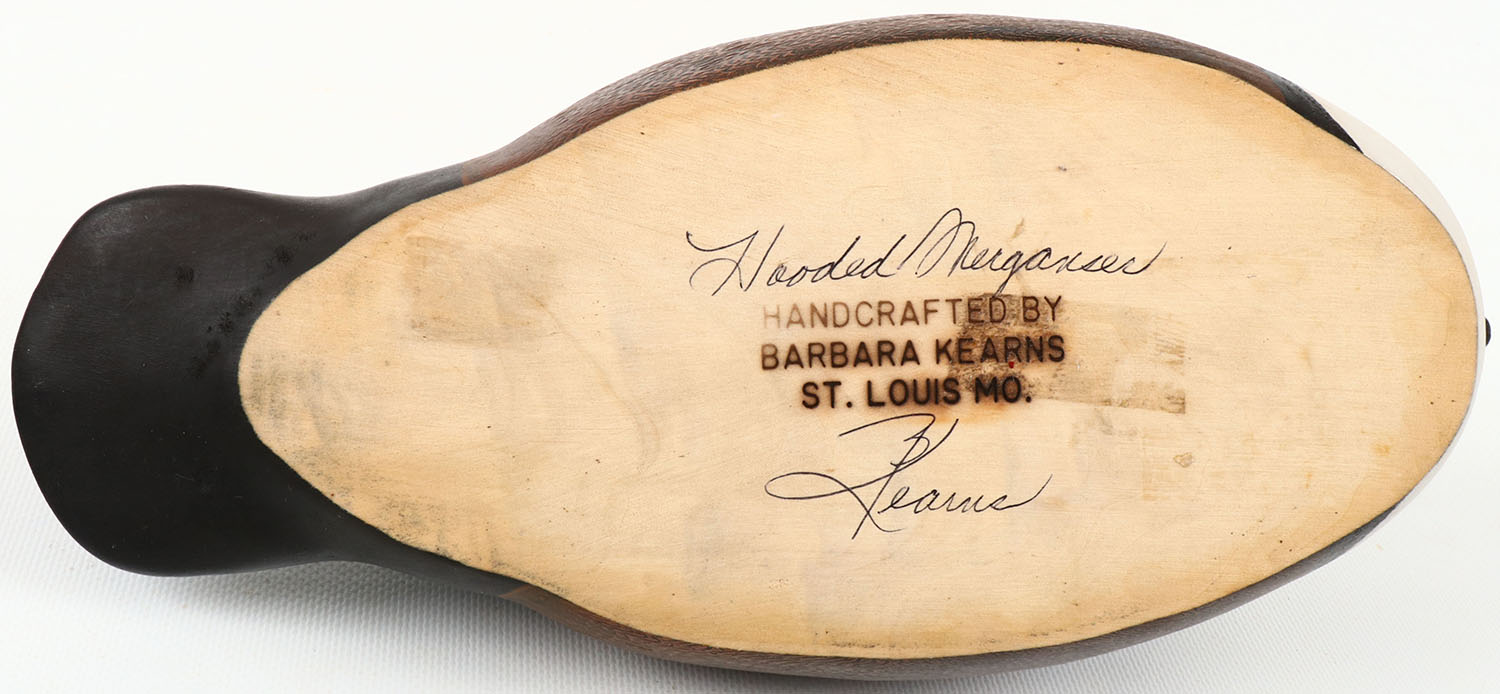 Hooded Merganser
HANDCRAFTED BY
BARBARA KEARNS
ST. LOUIS MO.
Kearns